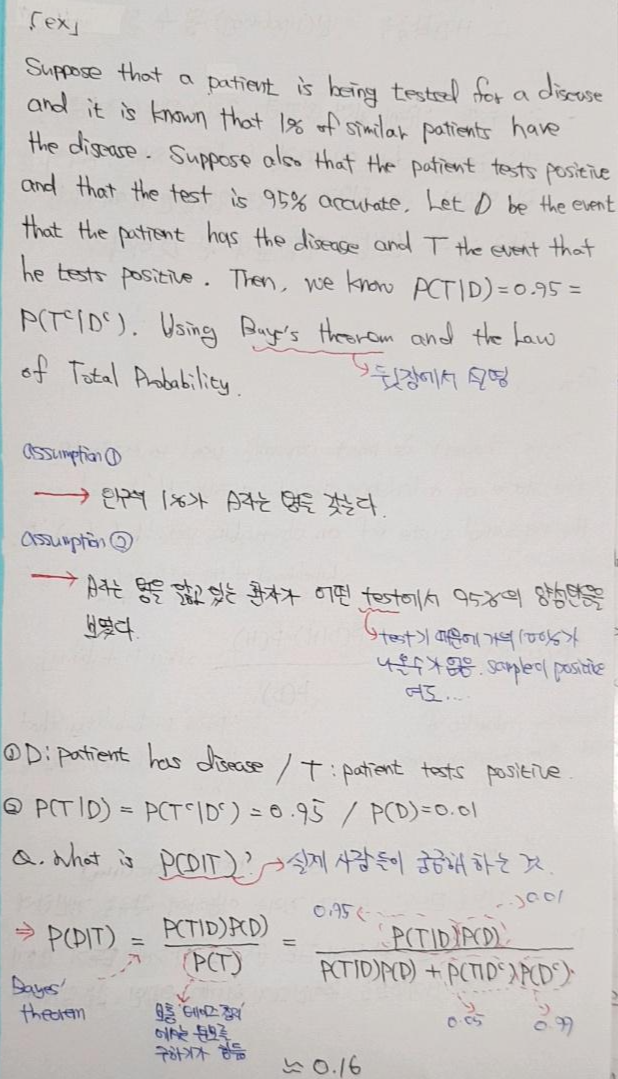 「ex」
Suppose that a patient is being tested for a disease
and it is known that 1% of similar patients have
the disease. Suppose also that the patient tests positive
and that the test is 95% accurate. Let D be the event
that the patient has the disease and T the event that
he tests positive. Then, we know P(T|D)=0.95=
P(Tᶜ|Dᶜ). Using Baye's theorem and the Law
of Total Probability.
뒷장에서 설명
assumption ①
→ 인구의 1%가 A라는 병을 갖는다.
assumption ②
→ A라는 병을 앓고 있는 환자가 어떤 test에서 95%의 양성반응을
보였다.
test기 때문에 거의 100%가
나올수가 없음. sample이 positive
여도...
① D: patient has disease / T: patient tests positive.
② P(T|D) = P(Tᶜ|Dᶜ) = 0.95 / P(D)=0.01
Q. What is P(D|T)? → 실제 사람들이 궁금해 하는 것.
0.95 0.01
⇒ P(D|T) = P(T|D)P(D) / P(T) = P(T|D)P(D) / P(T|D)P(D) + P(T|Dᶜ)P(Dᶜ)
Bayes'
theorem
보통 베이즈 정리
에서는 분모를
구하기가 힘듦
0.05 0.99
≈ 0.16